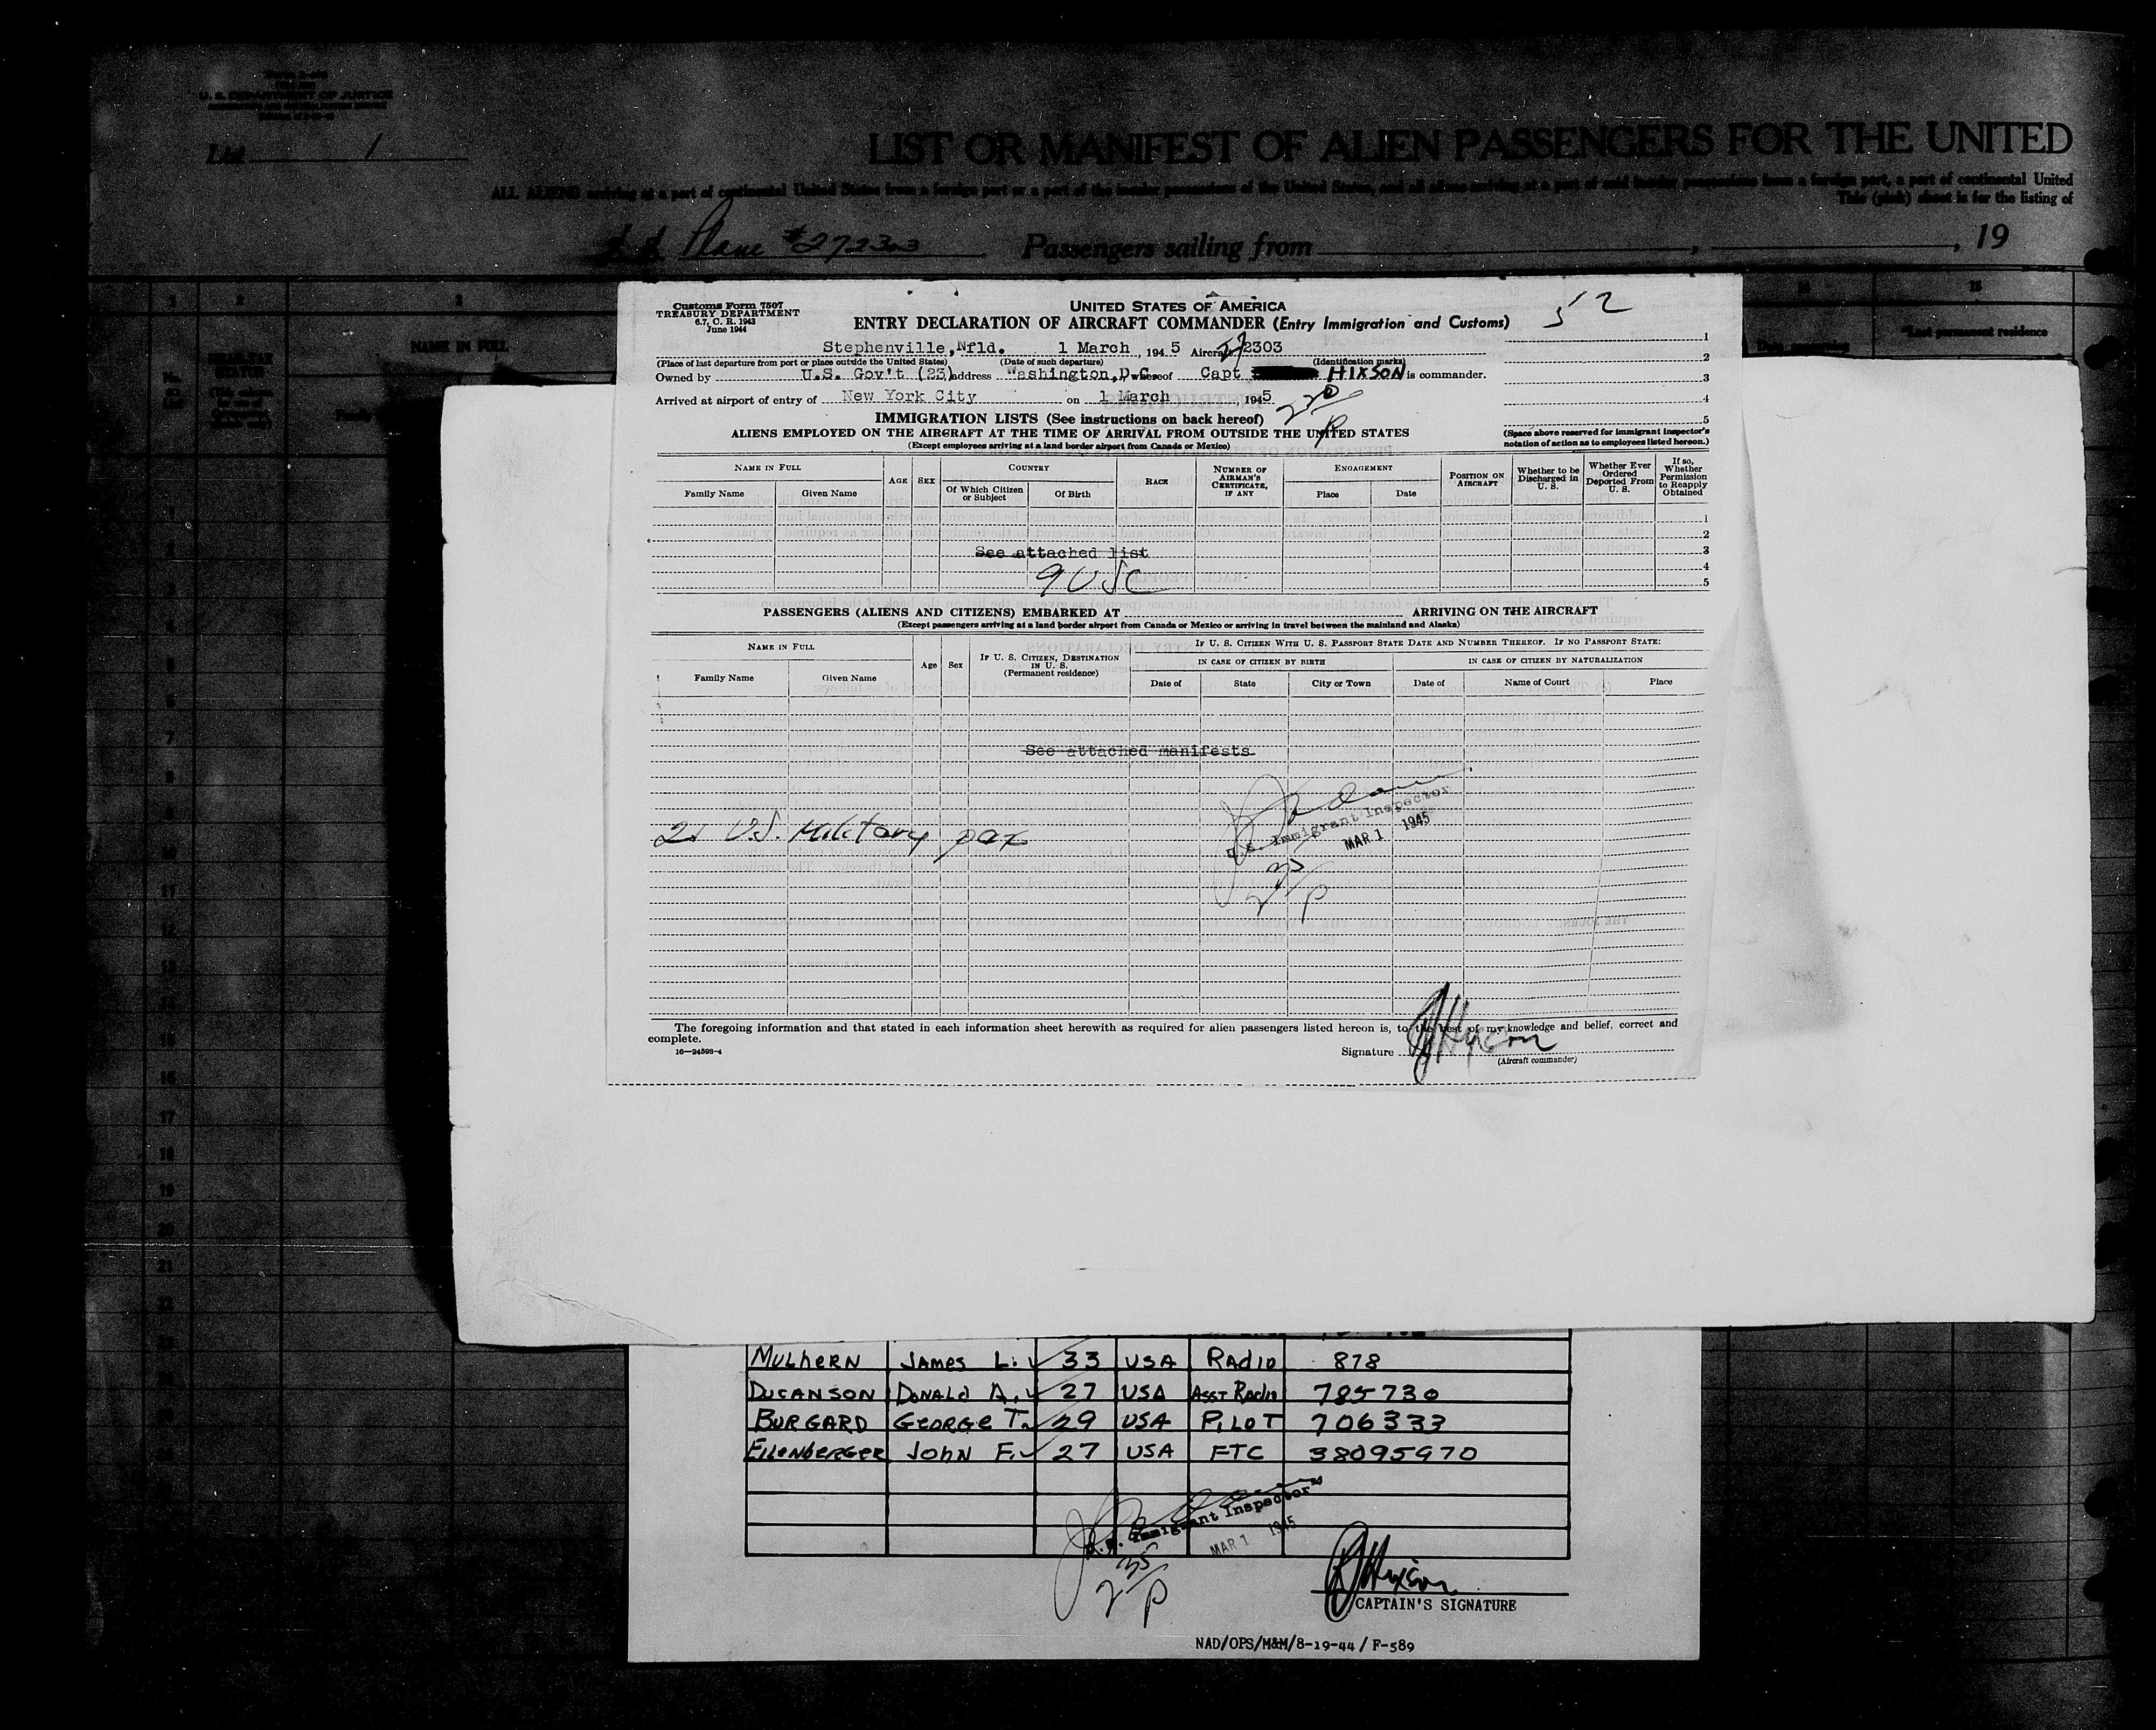 U. S. DEPARTMENT OF JUSTICE
List 1
LIST OR MANIFEST OF ALIEN PASSENGERS FOR THE UNITED
ALL ALIENS arriving at a port of continental United States from a foreign port or a port of the insular possessions of the United States, and all aliens arriving at a port of said insular possessions from a foreign port, a port of continental United
This (pink) sheet is for the listing of
Plane #272303 Passengers sailing from , , 19
1 2 3 15
NAME IN FULL
*Last permanent residence
Customs Form 7507
TREASURY DEPARTMENT
6.7, C. R. 1943
June 1944
UNITED STATES OF AMERICA
52
ENTRY DECLARATION OF AIRCRAFT COMMANDER (Entry Immigration and Customs)
Stephenville, Nfld. 1 March, 194 5 Aircraft 272303
(Place of last departure from port or place outside the United States) (Date of such departure) (Identification marks)
Owned by U.S. Gov't (23) address Washington, D.C. whereof Capt HIXSON is commander.
Arrived at airport of entry of New York City on 1 March, 1945
IMMIGRATION LISTS (See instructions on back hereof)
ALIENS EMPLOYED ON THE AIRCRAFT AT THE TIME OF ARRIVAL FROM OUTSIDE THE UNITED STATES
(Except employees arriving at a land border airport from Canada or Mexico)
1
2
3
4
5
(Space above reserved for immigrant inspector's
notation of action as to employees listed hereon.)
NAME IN FULL AGE SEX COUNTRY RACE NUMBER OF AIRMAN'S CERTIFICATE, IF ANY ENGAGEMENT POSITION ON AIRCRAFT Whether to be Discharged in U. S. Whether Ever Ordered Deported From U. S. If so, Whether Permission to Reapply Obtained
Family Name Given Name Of Which Citizen or Subject Of Birth Place Date
1
2
See attached list 3
9 USC 4
5
PASSENGERS (ALIENS AND CITIZENS) EMBARKED AT ARRIVING ON THE AIRCRAFT
(Except passengers arriving at a land border airport from Canada or Mexico or arriving in travel between the mainland and Alaska)
NAME IN FULL Age Sex IF U. S. CITIZEN, DESTINATION IN U. S. (Permanent residence) IF U. S. CITIZEN WITH U. S. PASSPORT STATE DATE AND NUMBER THEREOF. IF NO PASSPORT STATE:
IN CASE OF CITIZEN BY BIRTH IN CASE OF CITIZEN BY NATURALIZATION
Family Name Given Name Date of State City or Town Date of Name of Court Place
See attached manifests
U.S. Immigrant Inspector
MAR 1 1945
21 U.S. Military pax
The foregoing information and that stated in each information sheet herewith as required for alien passengers listed hereon is, to the best of my knowledge and belief, correct and
complete.
16—24598-4
Signature Hixson
(Aircraft commander)
MULHERN JAMES L. 33 USA RADIO 878
DUCANSON DONALD A. 27 USA ASST RADIO 785730
BURGARD GEORGE T. 29 USA PILOT 706333
EILENBERGER JOHN F. 27 USA FTC 38095970
U.S. Immigrant Inspector
MAR 1 1945
235 P
Hixson
CAPTAIN'S SIGNATURE
NAD/OPS/M&M/8-19-44 / F-589